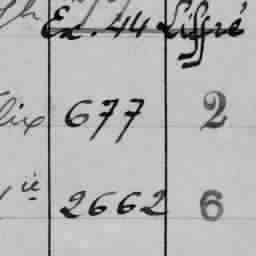 Ex. 44 Liffré
lix 677 2
ie 2662 6